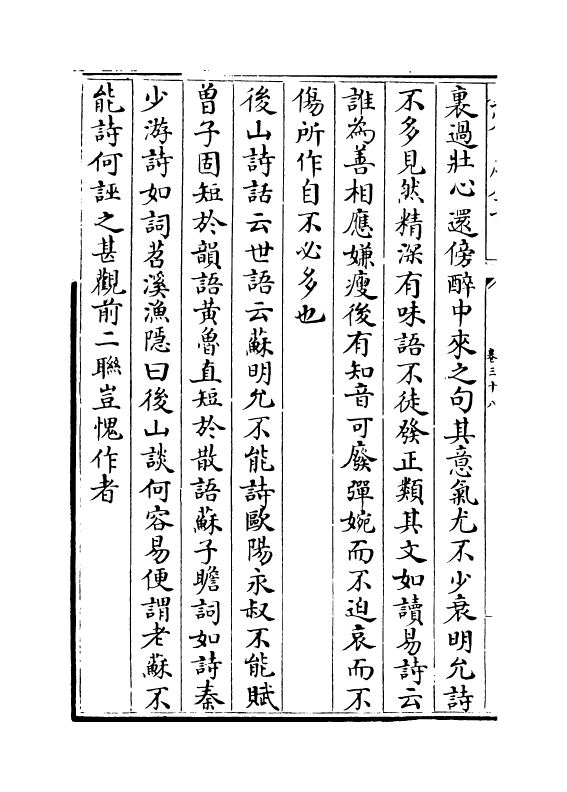 裏過壯心還傍醉中來之句其意氣尤不少衰明允詩
不多見然精深有味語不徒發正類其文如讀易詩云
誰為善相應嫌瘦後有知音可廢彈婉而不迫哀而不
傷所作自不必多也
後山詩話云世語云蘇明允不能詩歐陽永叔不能賦
曾子固短於韻語黃魯直短於散語蘇子瞻詞如詩秦
少游詩如詞苕溪漁隱曰後山談何容易便謂老蘇不
能詩何誣之甚觀前二聯豈愧作者
卷三十八